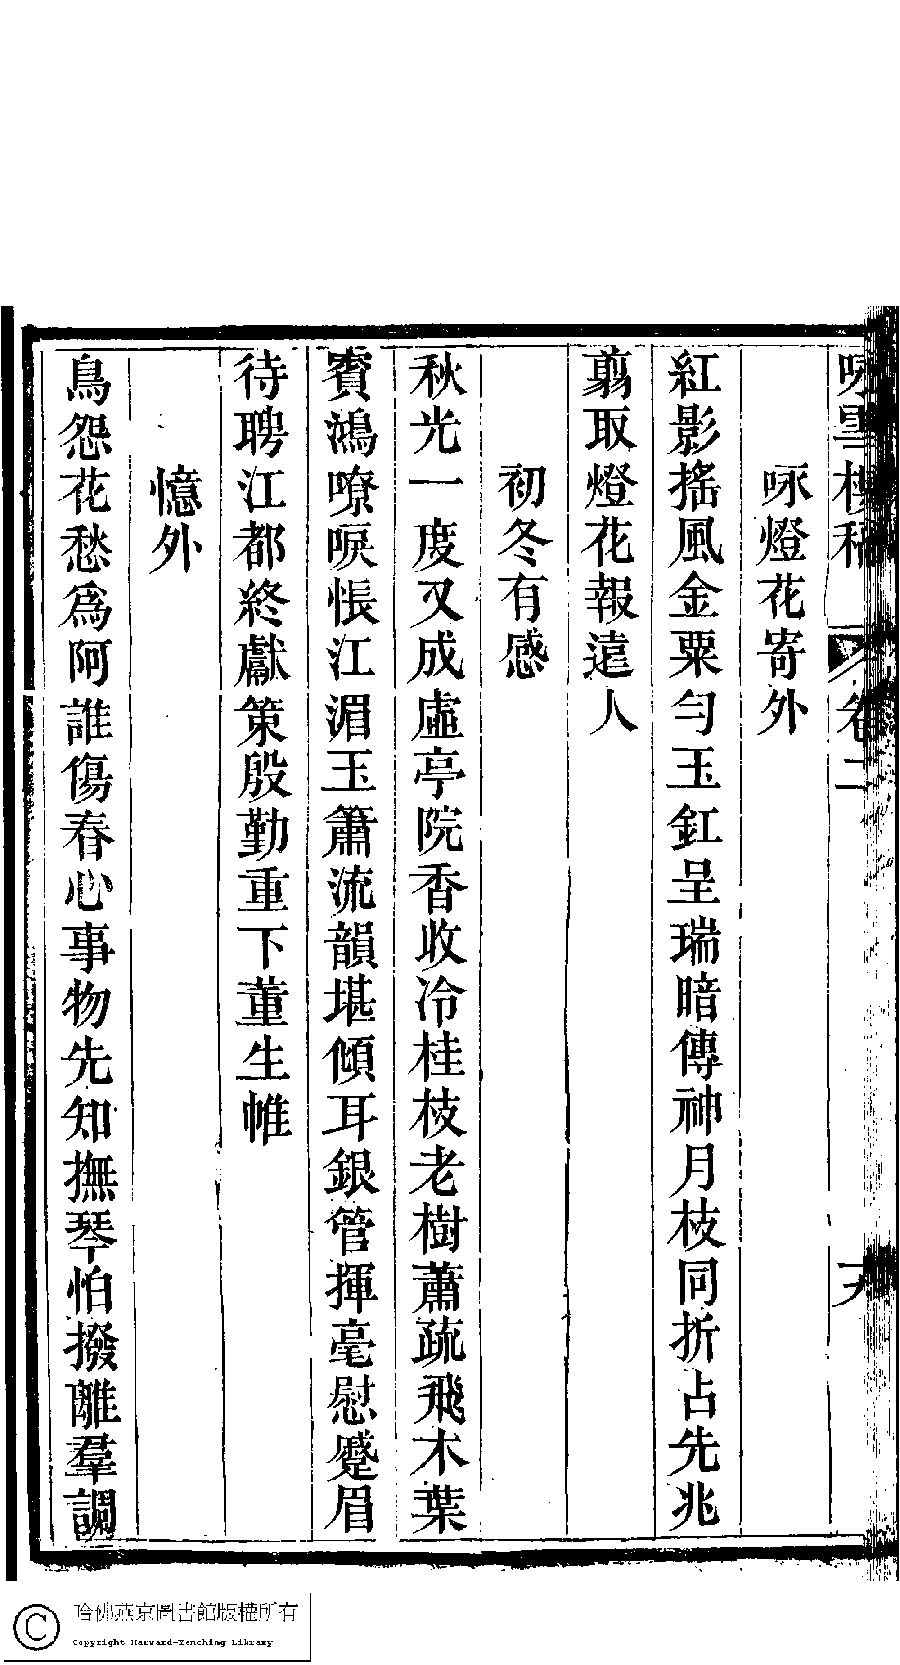 咏雪樓稿 卷二
咏燈花寄外
紅影搖風金粟勻玉釭呈瑞暗傳神月枝同折占先兆
翦取燈花報遠人
初冬有感
秋光一度又成虛亭院香收冷桂枝老樹蕭疏飛木葉
賓鴻嘹唳悵江湄玉簫流韻堪傾耳銀管揮毫慰蹙眉
待聘江都終獻策殷勤重下董生帷
憶外
鳥怨花愁爲阿誰傷春心事物先知撫琴怕撥離羣調
哈佛燕京圖書館版權所有
Copyright Harvard-Yenching Library